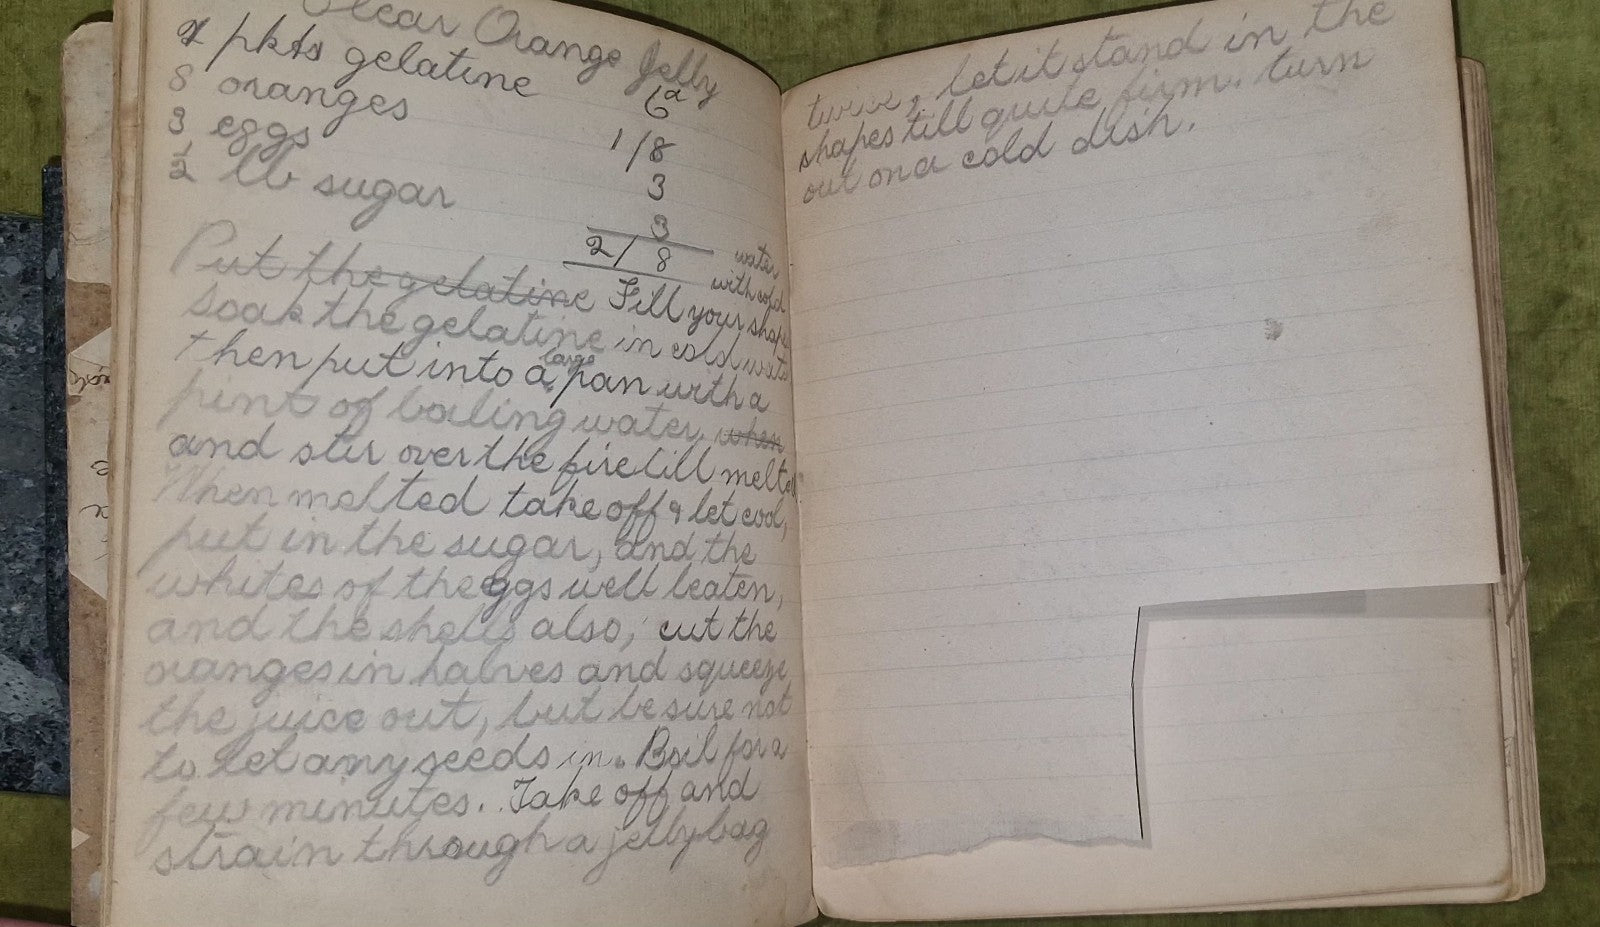 Clear Orange Jelly
2 pkts gelatine 6d
8 oranges 1/8
3 eggs 3
½ lb sugar 3
2/8
Put the gelatine Fill your shapes with cold water
soak the gelatine in cold water
then put into a large pan with a
pint of boiling water, when
and stir over the fire till melted.
When melted take off & let cool,
put in the sugar, and the
whites of the eggs well beaten,
and the shells also, cut the
oranges in halves and squeeze
the juice out, but be sure not
to let any seeds in. Boil for a
few minutes. Take off and
strain through a jelly bag
twice, let it stand in the
shapes till quite firm. turn
out on a cold dish.